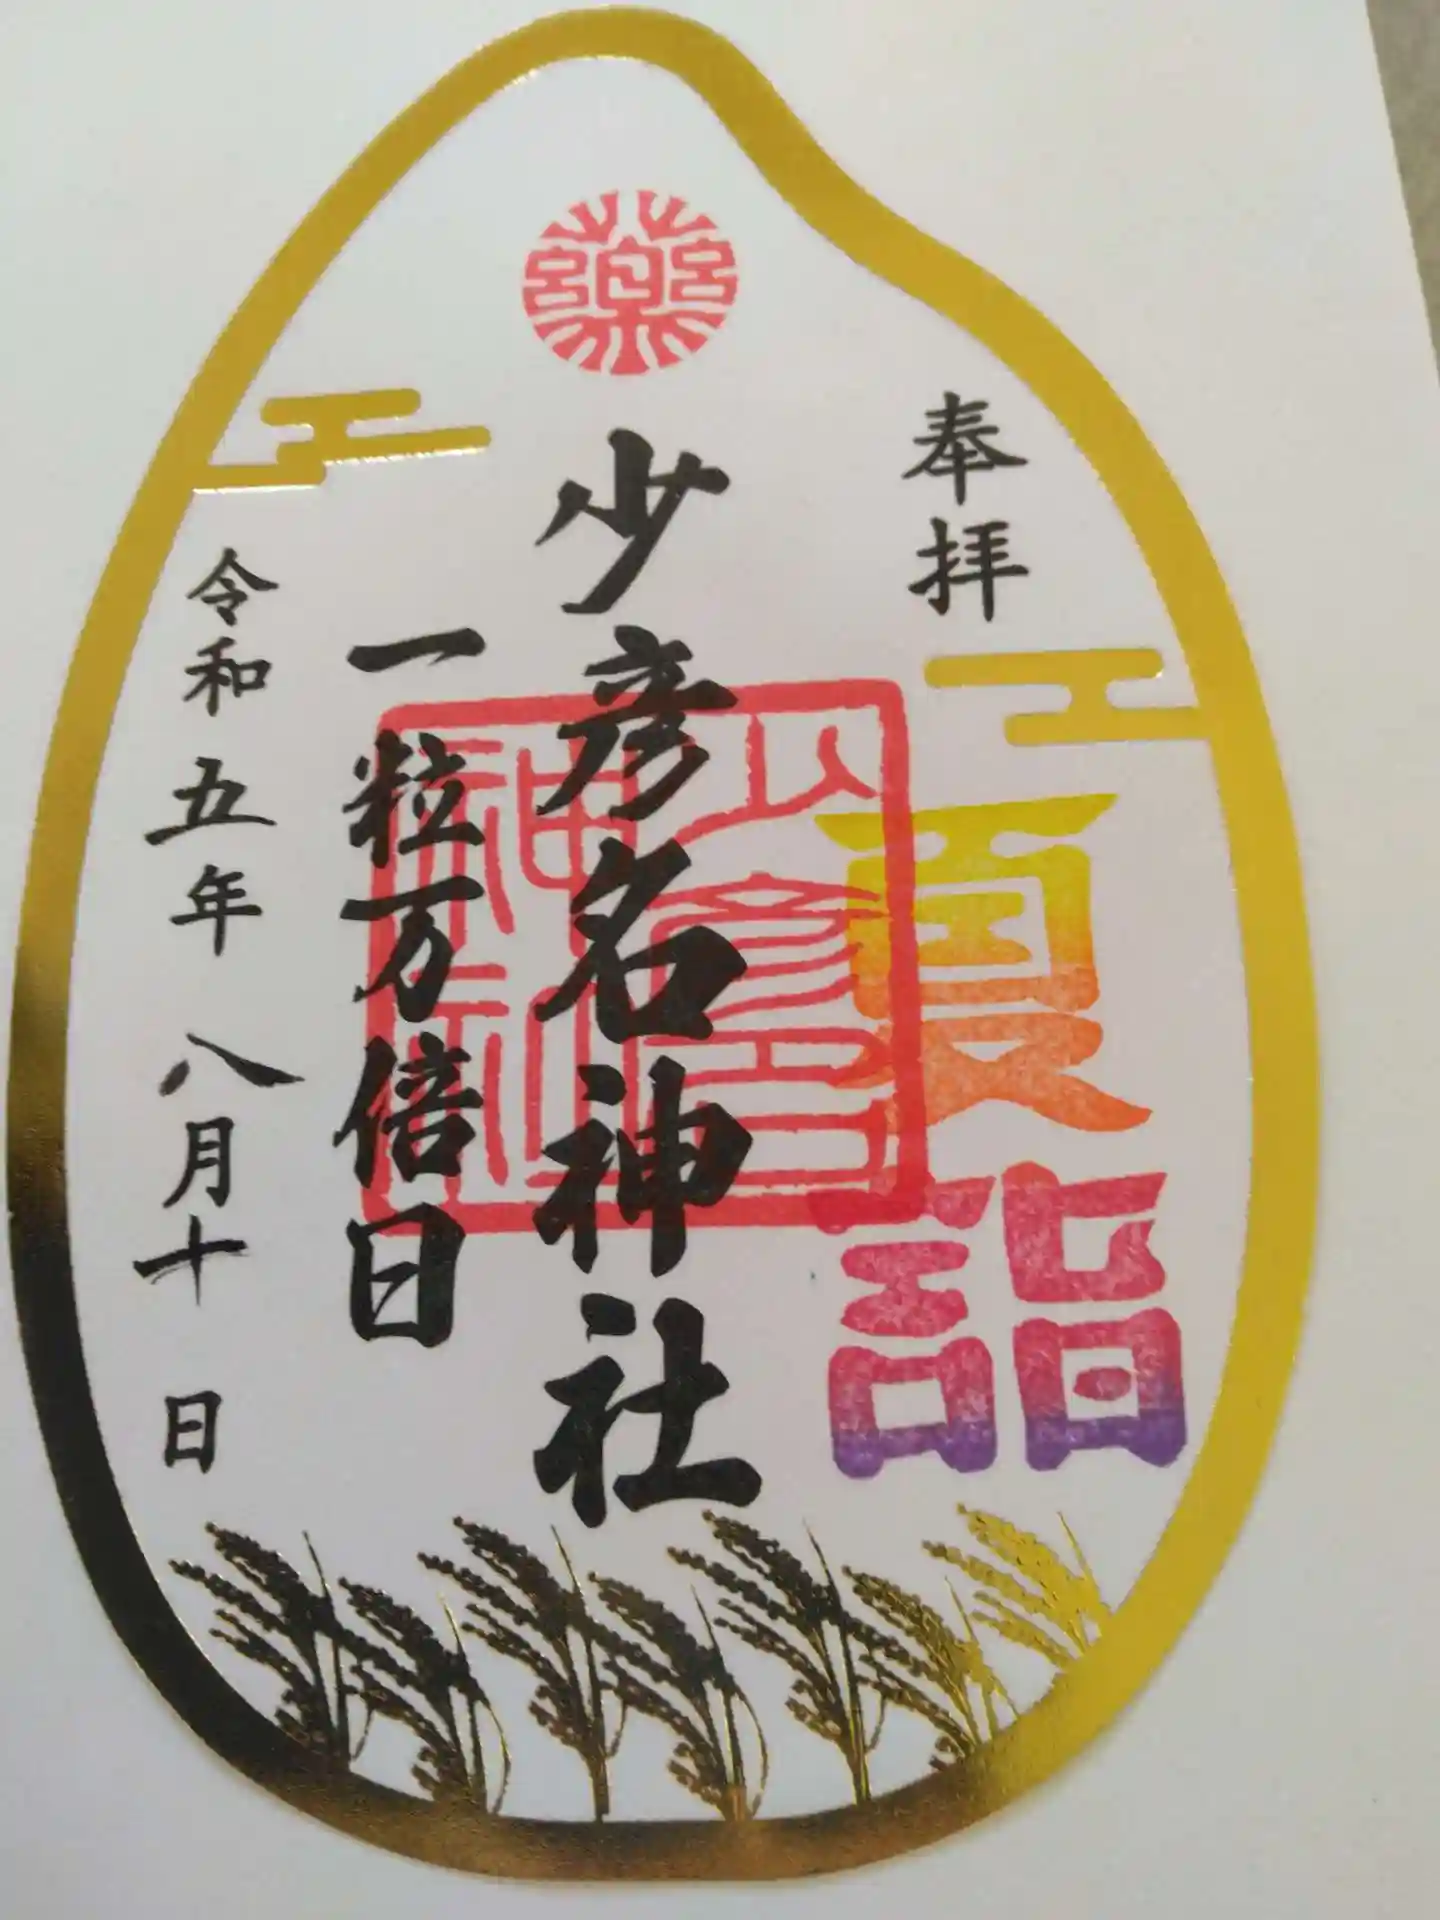 薬
奉拝
夏詣
少彦名神社
少彦名
神社
一粒万倍日
令和五年 八月十日